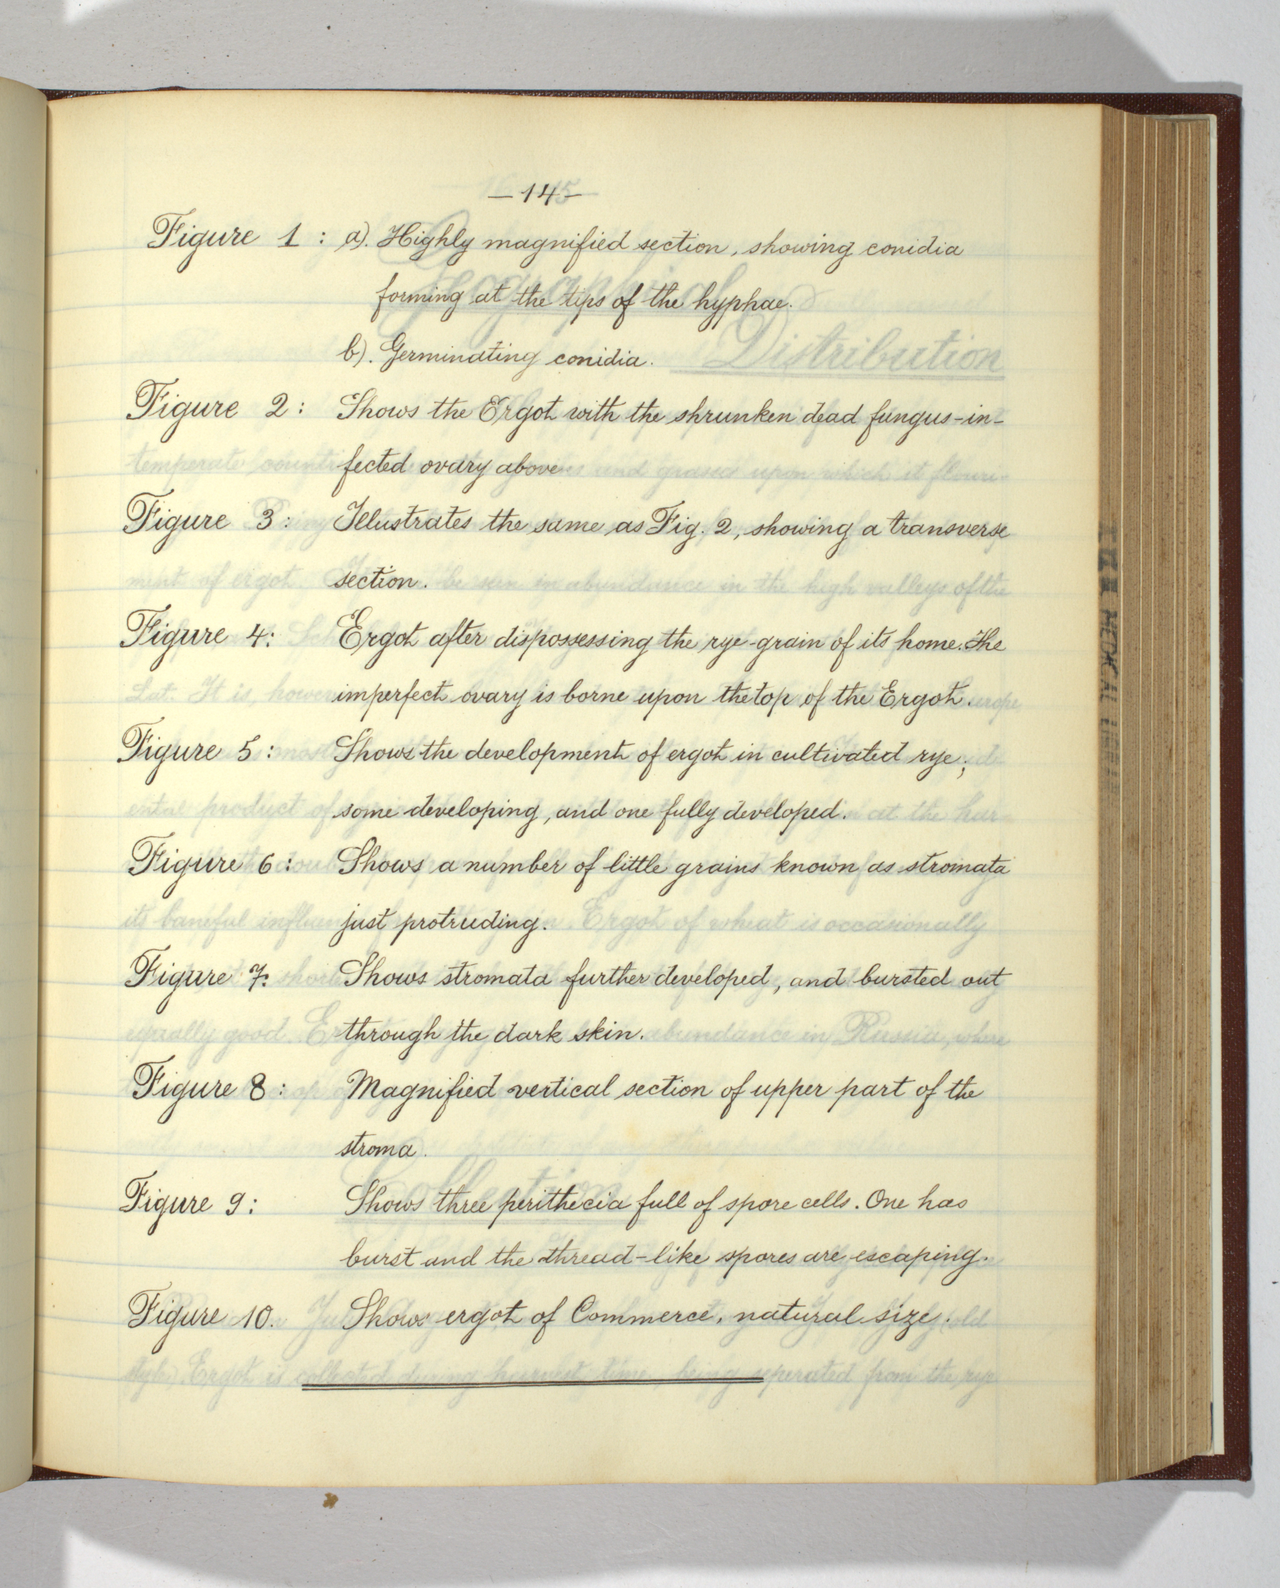 —14—
Figure 1 : a). Highly magnified section, showing conidia
forming at the tips of the hyphae.
b). Germinating conidia.
Figure 2 : Shows the Ergot with the shrunken dead fungus-in-
fected ovary above
Figure 3 : Illustrates the same as Fig. 2, showing a transverse
section.
Figure 4 : Ergot after dispossessing the rye-grain of its home. The
imperfect ovary is borne upon the top of the Ergot.
Figure 5 : Shows the development of ergot in cultivated rye;
some developing, and one fully developed.
Figure 6 : Shows a number of little grains known as stromata
just protruding.
Figure 7. Shows stromata further developed, and bursted out
through the dark skin.
Figure 8 : Magnified vertical section of upper part of the
stroma.
Figure 9 : Shows three perithecia full of spore cells. One has
burst and the thread-like spores are escaping.
Figure 10. Shows ergot of Commerce, natural size.